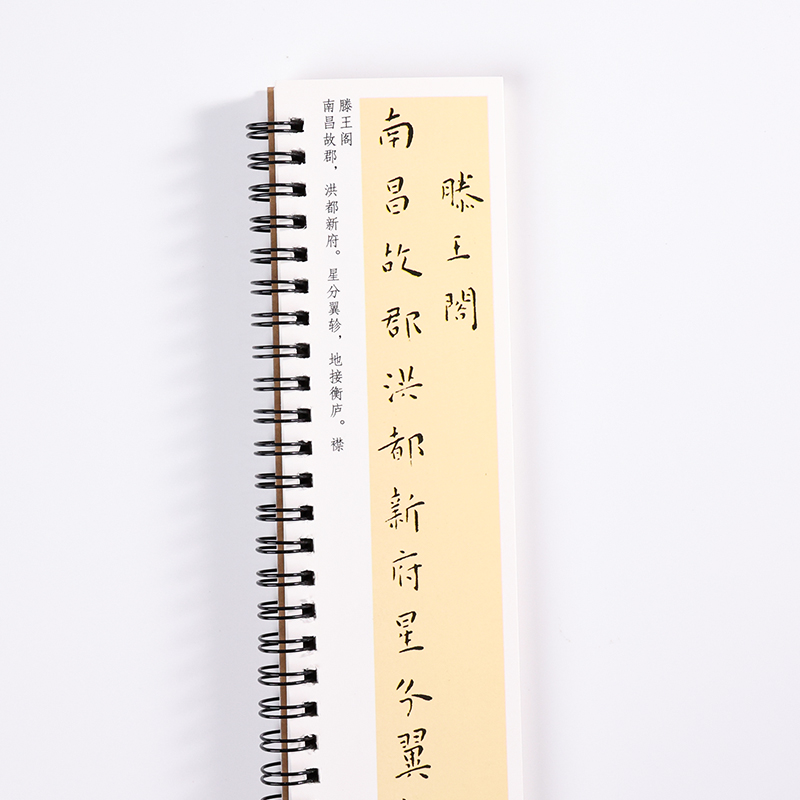 滕王閣
南昌故郡洪都新府星分翼
滕王阁
南昌故郡，洪都新府。星分翼轸，地接衡庐。襟